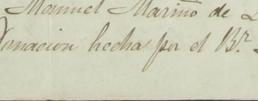 Manuel Mariño de L
Donacion hecha por el Br.